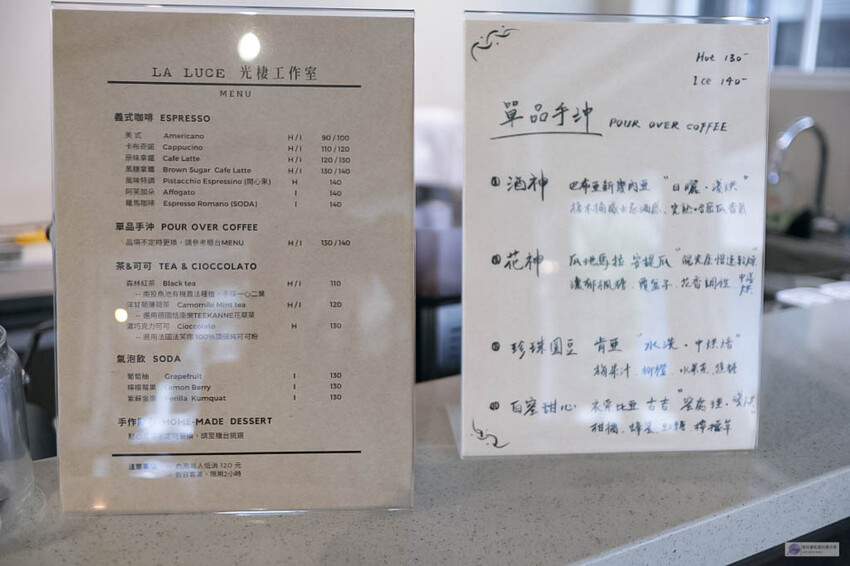 LA LUCE 光棲工作室
MENU
義式咖啡 ESPRESSO
美式 Americano H/I 90/100
卡布奇諾 Cappucino H/I 110/120
原味拿鐵 Cafe Latte H/I 120/130
黑糖拿鐵 Brown Sugar Cafe Latte H/I 130/140
風味特調 Pistacchio Espressino (開心果) H 140
阿芙加朵 Affogato I 140
羅馬咖啡 Espresso Romano (SODA) I 140
單品手沖 POUR OVER COFFEE
品項不定時更換，請參考櫃台MENU H/I 130/140
茶&可可 TEA & CIOCCOLATO
森林紅茶 Black tea H/I 110
一心二葉
洋甘菊薄荷茶 Camomile Mint tea H/I 120
-- 選用德國恬康樂TEEKANNE花草茶
濃巧克力可可 Cioccolato H 130
-- 選用法國法芙娜 100%頂級純可可粉
氣泡飲 SODA
葡萄柚 Grapefruit I 130
檸檬莓果 Lemon Barry I 130
紫蘇金桔 Perilla Kumquat I 130
手作 HOME-MADE DESSERT
更換，請至櫃台挑選
低消 120 元
限時2小時
Hot 130-
Ice 140-
單品手沖 POUR OVER COFFEE
酒神 巴布亞新幾內亞 "日曬·淺烘"
花神 瓜地馬拉 安提瓜
花香調性 中淺烘
珍珠圓豆 肯亞 "水洗·中烘焙"
柳橙、水果茶、焦糖
白蜜甜心 衣索比亞 古吉
柑橘、蜂蜜